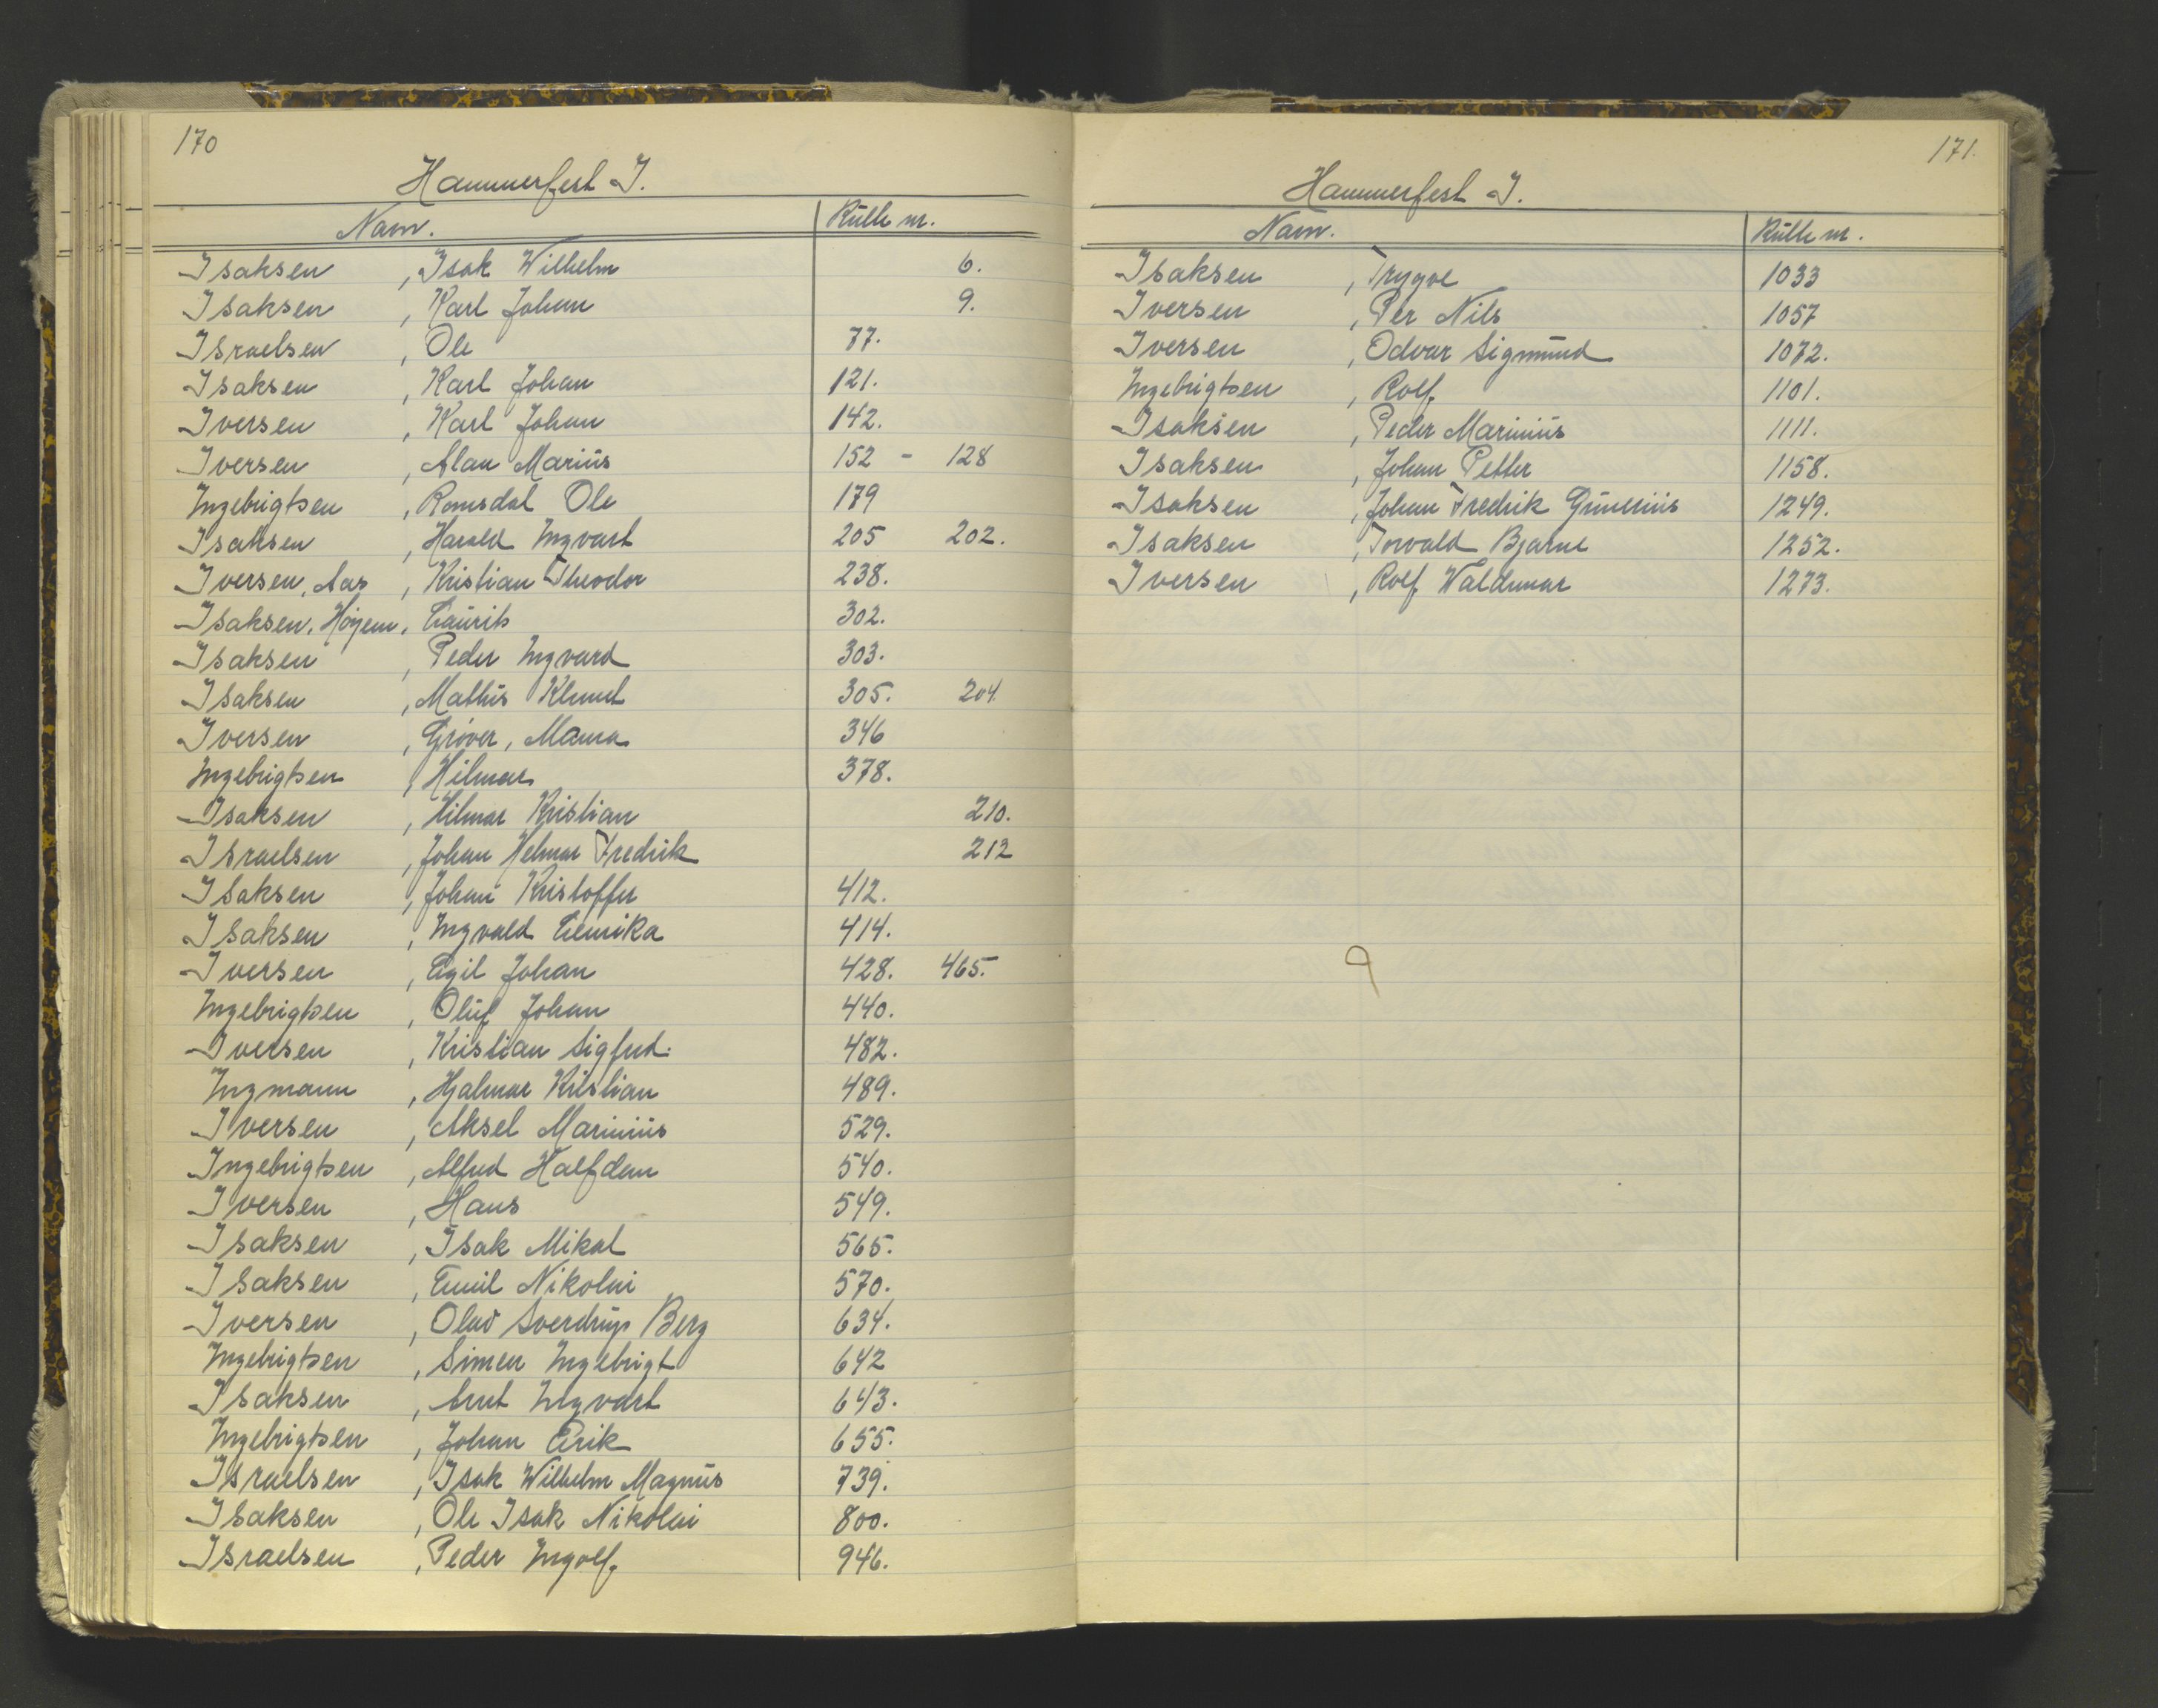 170
Hammerfest I.
Navn. Rulle nr.
Isaksen , Isak Wilhelm 6.
Isaksen , Karl Johan 9.
Israelsen , Ole 77.
Isaksen , Karl Johan 121.
Iversen , Karl Johan 142.
Iversen , Alan Marius 152 - 128
Ingebrigtsen , Romsdal Ole 179
Isaksen , Harald Ingvart 205 202.
Iversen, Aas , Kristian Theodor 238.
Isaksen, Höyem, Laurits 302.
Isaksen , Peder Ingvard 303.
Isaksen , Mathis Klemet 305. 204.
Iversen , Gröver, 346
Ingebrigtsen , Hilmar 378.
Isaksen , Hilmar Kristian 210.
Israelsen , Johan Helmar Fredrik 212
Isaksen , Johan Kristoffer 412.
Isaksen , Ingvald Henrika 414.
Iversen , Egil Johan 428. 465.
Ingebrigtsen , Oluf Johan 440.
Iversen , Kristian Sigfred. 482.
Ingmann , Hjalmar Kristian 489.
Iversen , Aksel Marinius 529.
Ingebrigtsen , Alfred Halfdan 540.
Iversen , Hans 549.
Isaksen , Isak Mikal 565.
Isaksen , Emil Nikolai 570.
Iversen , Olav Sverdrup Berg 634.
Ingebrigtsen , Simen Ingebrigt 642
Isaksen , Arnt Ingvart 643.
Ingebrigtsen , Johan Erik 655.
Israelsen , Isak Wilhelm Magnus 739.
Isaksen , Ole Isak Nikolai 800.
Israelsen , Peder Ingolf 946.
171.
Hammerfest I.
Navn. Rulle nr.
Isaksen , Trygve 1033
Iversen , Per Nils 1057
Iversen , Odvar Sigmund 1072.
Ingebrigtsen , Rolf 1101.
Isaksen , Peder Marinius 1111.
Isaksen , Johan Petter 1158.
Isaksen , Johan Fredrik Gunerius 1249.
Isaksen , Torvald Bjarne 1252.
Iversen , Rolf Waldemar 1273.
9